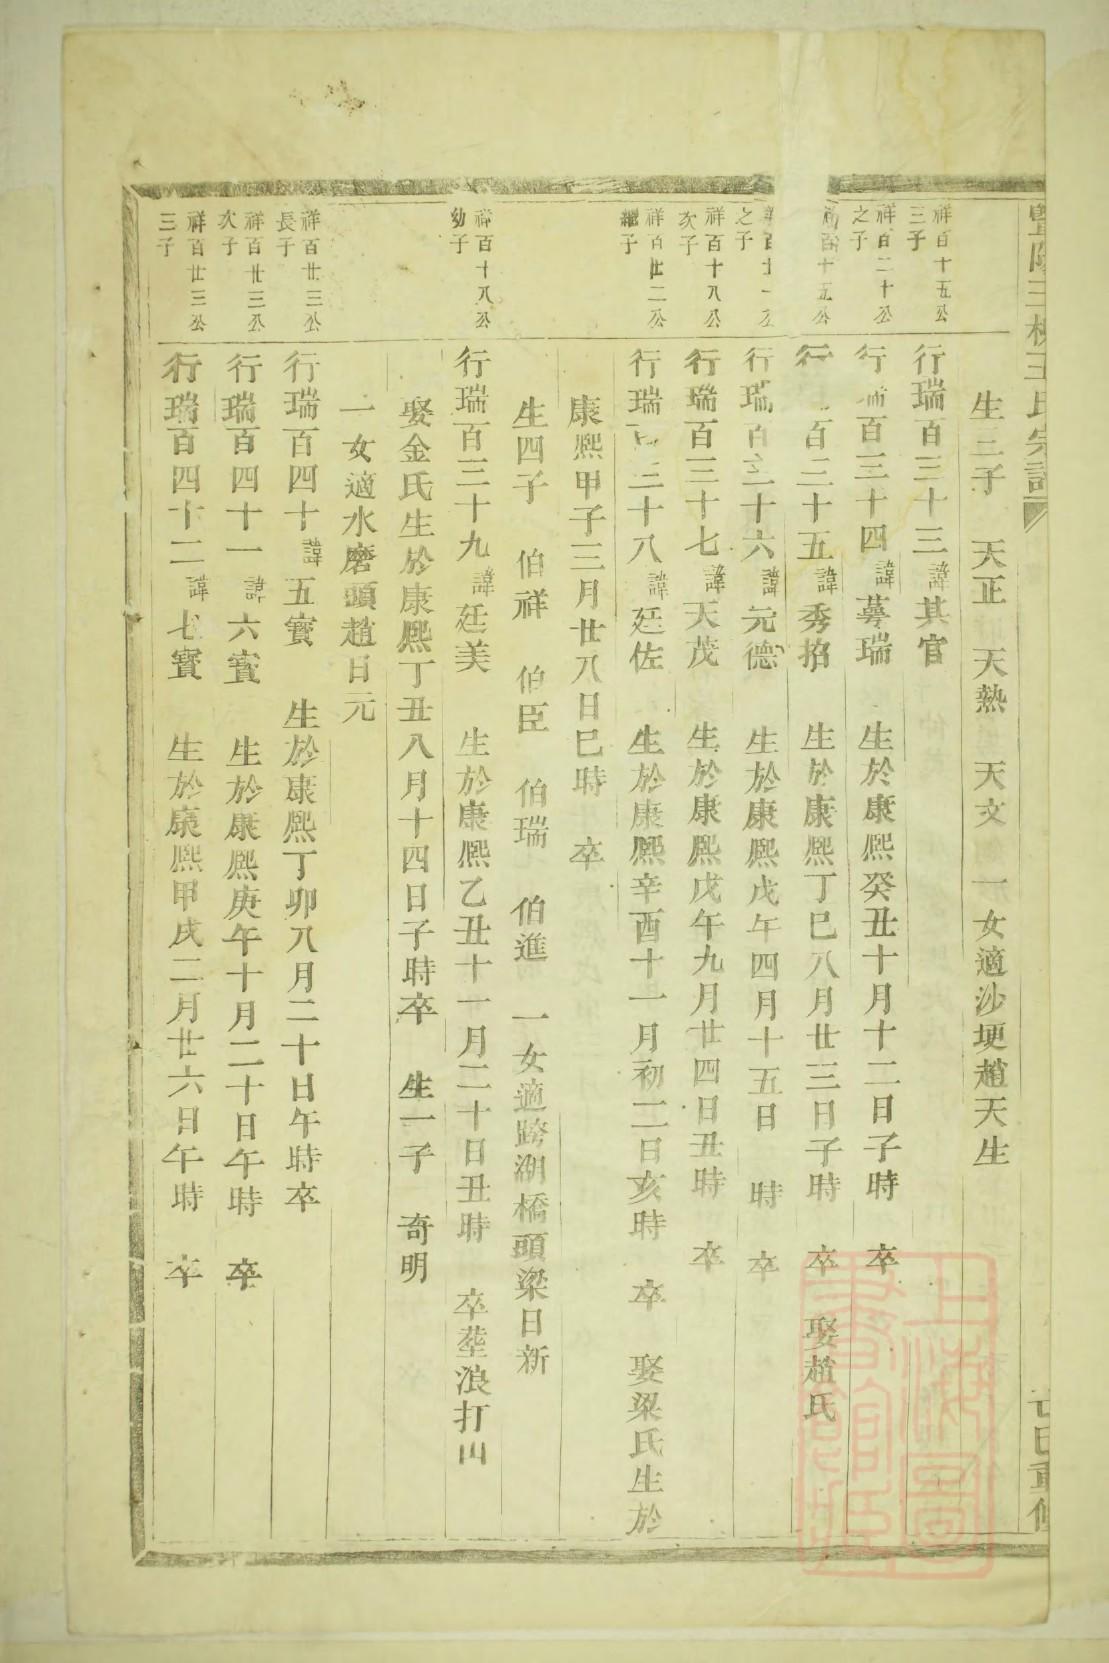 生三子 天正 天熱 天文 一女適沙埂趙天生
祥百十五公
三子
行瑞百三十三諱其官
祥百二十公
之子
行瑞百三十四諱 瑞 生於康熙癸丑十月十二日子時 卒
百十五公
行 百三十五諱秀招 生於康熙丁巳八月廿三日子時 卒 娶趙氏
之子
行瑞百三十六諱元德 生於康熙戊午四月十五日 時 卒
祥百十八公
次子
行瑞百三十七諱天茂 生於康熙戊午九月廿四日丑時 卒
祥百廿二公
繼子
行瑞百三十八諱廷佐 生於康熙辛酉十一月初二日亥時 卒 娶梁氏生於
康熙甲子三月廿八日巳時 卒
生四子 伯祥 伯臣 伯瑞 伯進 一女適跨湖橋頭梁日新
祥百十八公
幼子
行瑞百三十九諱廷美 生於康熙乙丑十一月二十日丑時 卒塟浪打山
娶金氏生於康熙丁丑八月十四日子時卒 生一子 奇明
一女適水磨頭趙日元
祥百廿三公
長子
行瑞百四十諱五寳 生於康熙丁卯八月二十日午時卒
祥百廿三公
次子
行瑞百四十一諱六寳 生於康熙庚午十月二十日午時 卒
祥百廿三公
三子
行瑞百四十二諱七寳 生於康熙甲戌二月廿六日午時 卒
上海圖
書館藏